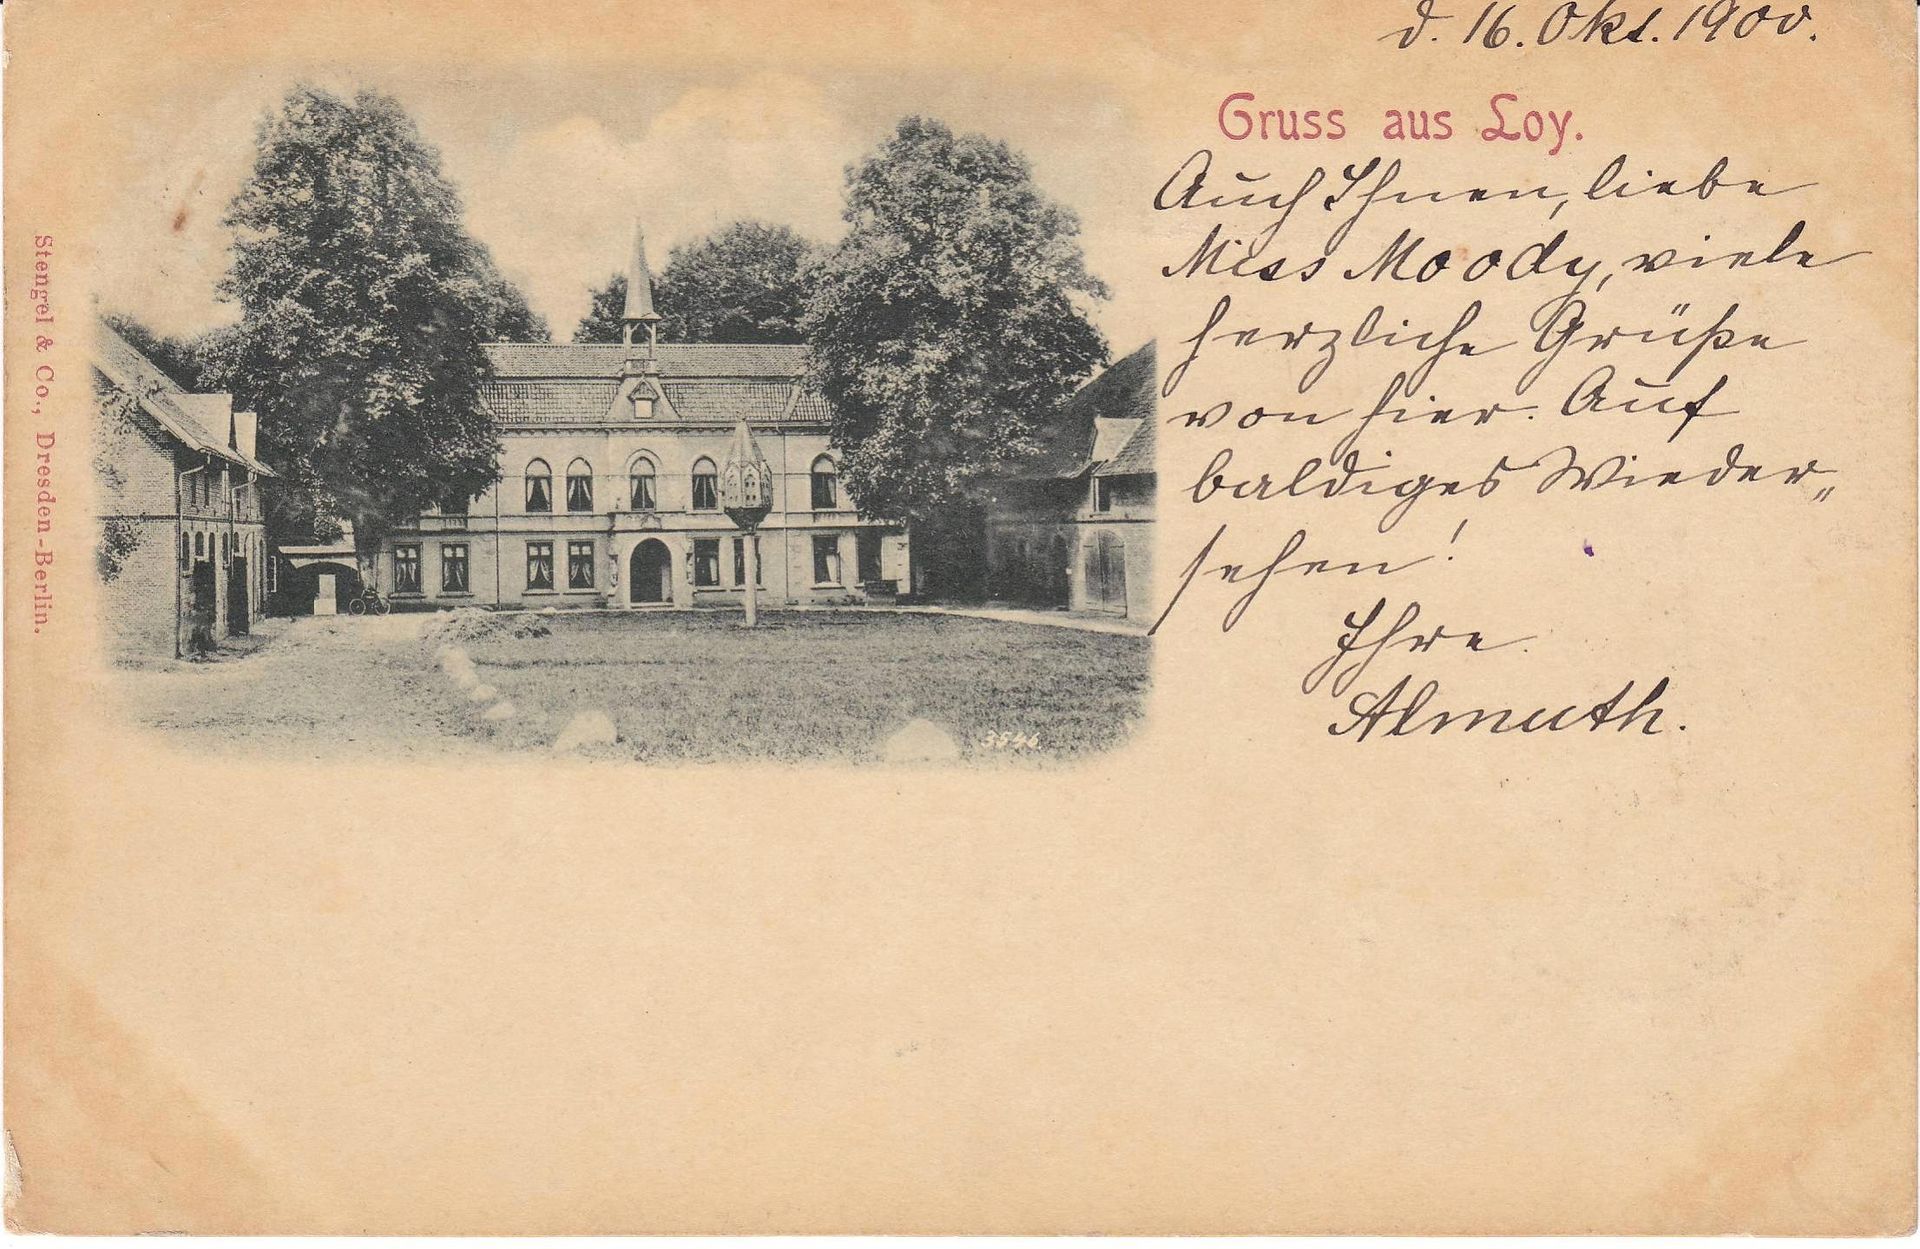 d. 16. Okt. 1900.
Gruss aus Loy.
Auch Ihnen, liebe
Miss Moody, viele
herzliche Grüße
von hier. Auf
baldiges Wieder„
sehen!
Ihre
Almuth.
Stengel & Co., Dresden-Berlin.
3546